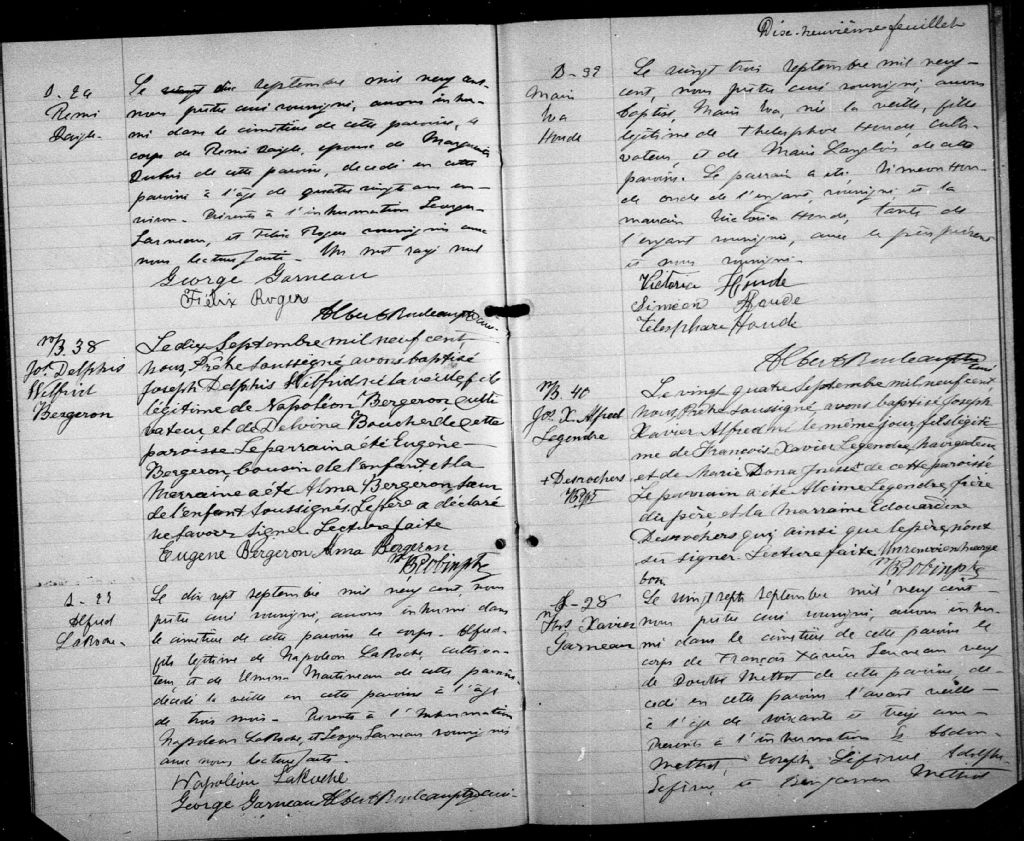 D - 24
Remi
Daigle
Le dix septembre mil neuf cent
nous prêtre curé soussigné, avons inhu-
mé dans le cimetière de cette paroisse, le
corps de Remi Daigle, epoux de Marguerite
Dubois de cette paroisse, décédé en cette
paroisse à l'âge de quatre vingts ans en-
viron. Présents à l'inhumation George
Garneau, et Félix Roger soussignés avec
nous lecture faite. Un mot rayé nul
George Garneau
Félix Roger
Albert Rouleau ptre curé
B. 38
Jos. Delphis
Wilfrid
Bergeron
Le dix Septembre mil neuf cent
Nous, Prêtre Soussigné avons baptisé
Joseph Delphis Wilfrid né la veille fils
légitime de Napoléon Bergeron culti
vateur et de Delvina Boucher de cette
paroisse. Le parrain a été Eugène
Bergeron, cousin de l'enfant et la
Marraine a été Alma Bergeron, sœur
de l'enfant Soussignés. Le père a déclaré
ne savoir signer. Lecture faite
Eugene Bergeron Alma Bergeron
Alfred
LaRoche -
Le dix sept septembre mil neuf cent, nous
prêtre curé soussigné, avons inhumé dans
le cimetière de cette paroisse le corps - Alfred -
fils légitime de Napoléon LaRoche, cultiva-
teur et de Elmina Martineau de cette paroisse
décédé la veille en cette paroisse à l'âge
de trois mois. - Présents à l'inhumation
Napoléon LaRoche, et George Garneau soussignés
avec nous lecture faite.
Napoléon LaRoche
George Garneau Albert Rouleau ptre curé
Dix-neuvième feuillet
B - 39
Marie
Eva
Houde
Le vingt trois septembre mil neuf
cent, nous prêtre curé soussigné, avons
baptisé, Marie Eva, née la veille, fille
légitime de Thelesphore Houde culti-
vateur, et de Marie Langlois de cette
paroisse. Le parrain a été Simeon Hou-
de oncle de l'enfant, soussigné et la
marraine Victoria Houde, tante de
l'enfant soussignée, avec le père présent
et nous soussigné.
Victoria Houde
Siméon Houde
Télesphore Houde
Albert Rouleau ptre curé
B. 40
Jos. X. Alfred
Legendre
+ Desrochers
Le vingt quatre Septembre mil neuf cent
Nous, Prêtre soussigné, avons baptisé Joseph
Xavier Alfred né le même jour fils légiti
me de François Xavier Legendre, navigateur
et de Marie Dona de cette paroisse
Le parrain a été Alcime Legendre, frère
du père et la Marraine Edouardine
Desrochers qui ainsi que le père, n'ont
su signer. Lecture faite. Un renvoi en marge
bon.
S - 28
Frs Xavier
Garneau
Le vingt sept septembre mil neuf cent -
nous prêtre curé soussigné, avons inhu-
mé dans le cimetière de cette paroisse le
corps de François Xavier Garneau veuf
de Methot de cette paroisse, dé-
cédé en cette paroisse l'avant veille -
à l'âge de soixante et treize ans -
Présents à l'inhumation Abdon
Methot, Joseph Adolphe
et Benjamin Methot